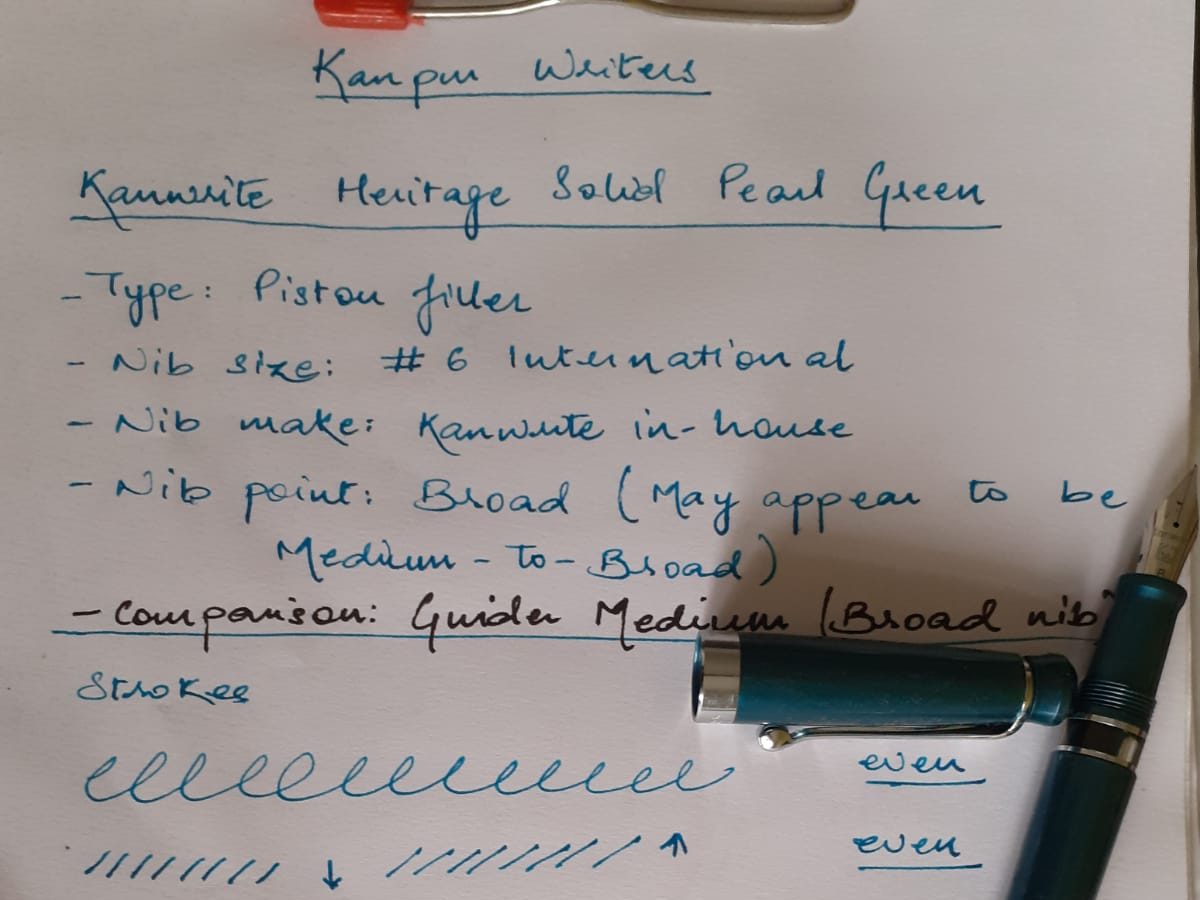 Kanpur Writers
Kanwrite Heritage Solid Pearl Green
- Type: Piston filler
- Nib size: # 6 International
- Nib make: Kanwrite in-house
- Nib point: Broad (May appear to be
Medium-to-Broad)
- Comparison: Guider Medium (Broad nib)
Strokes
even
↓ ↑ even